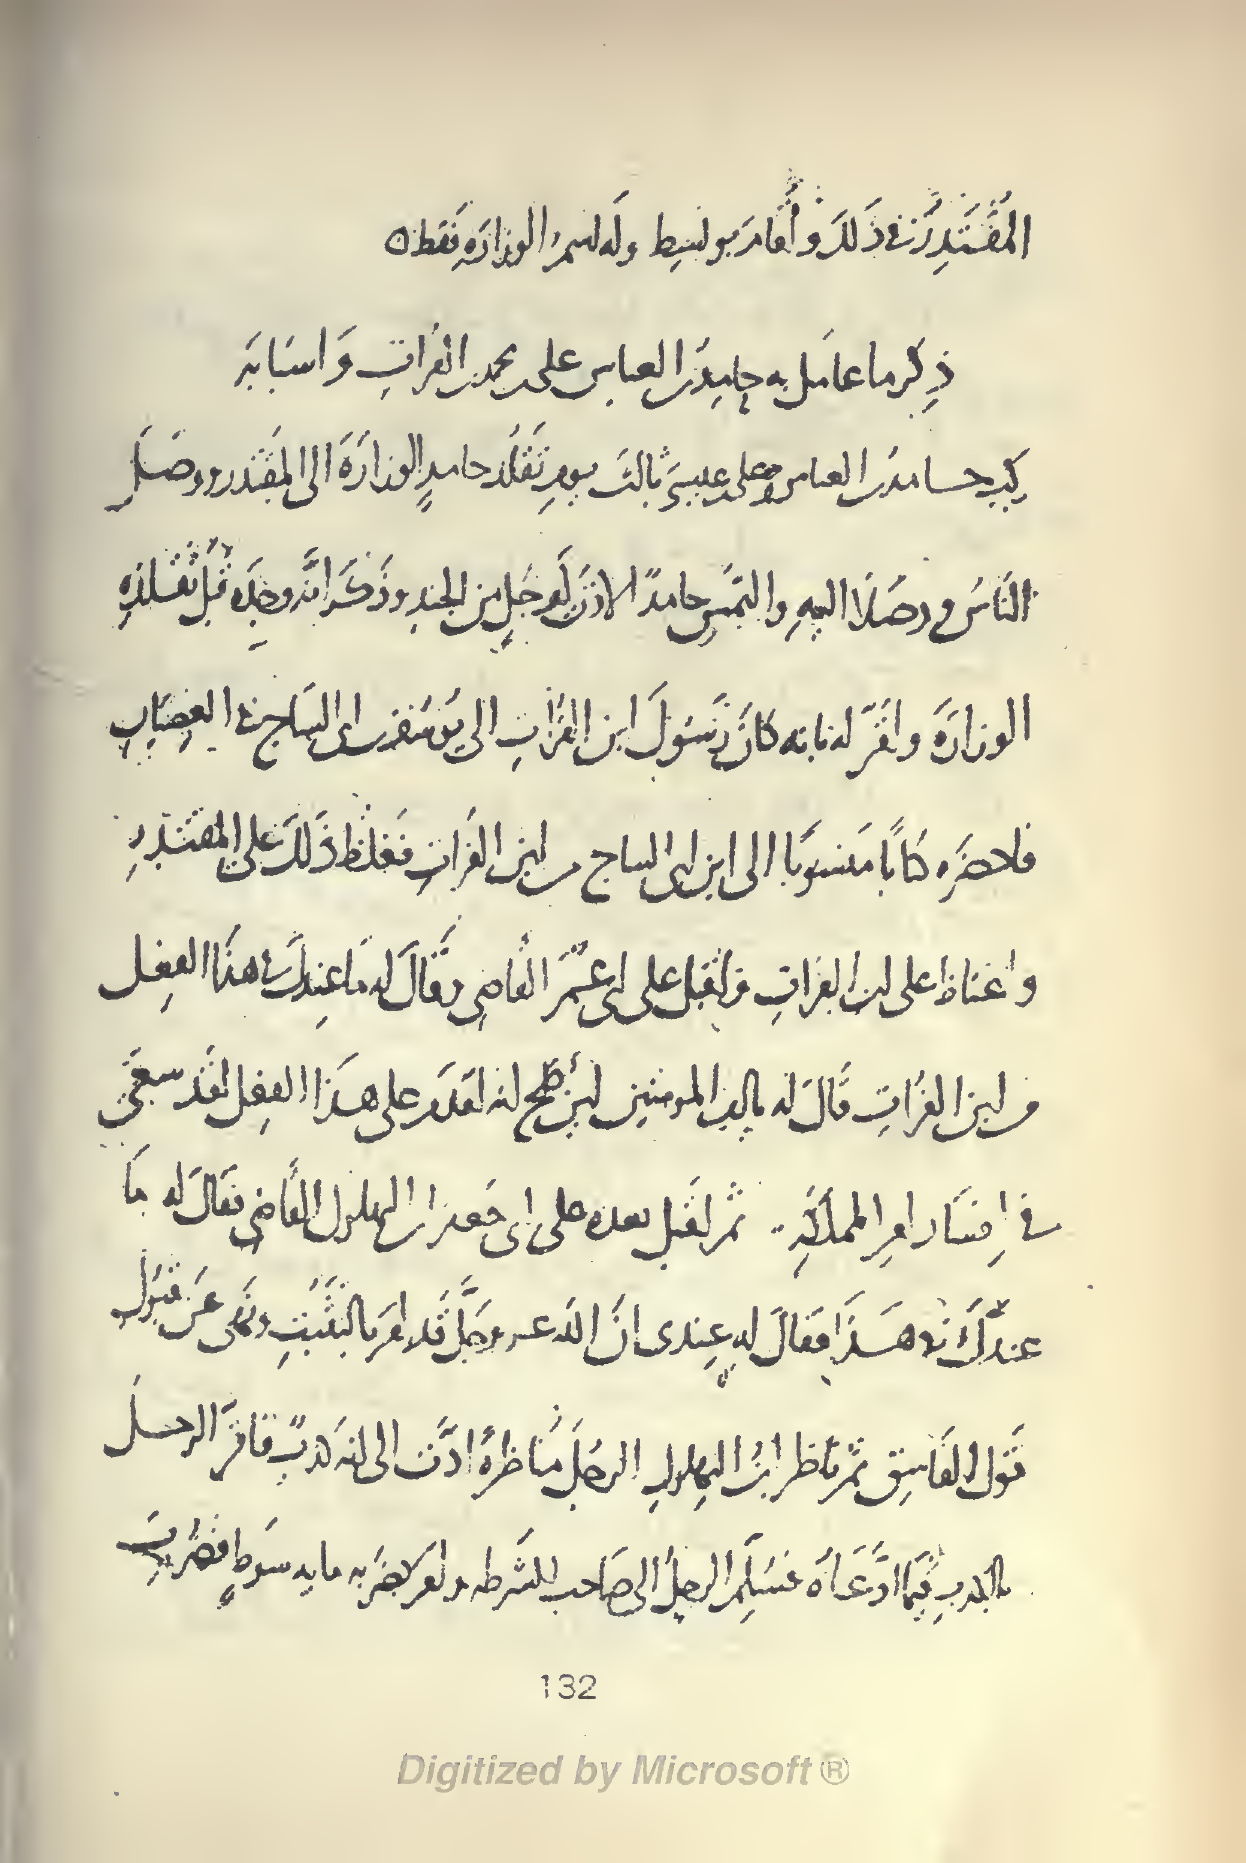 المقتدر في ذلك وأقام بواسط وله اسم الوزارة فقط ٥
ذكر ما عامل به حامد بن العباس علي بن محمد بن الفرات وأسبابه
ركب حامد بن العباس وعلي بن عيسى ثالث يوم تقلد حامد الوزارة الى المقتدر ووصل
الناس ووصلا اليه والتمس حامد الاذن لرجل من الجند وذكر انه وجده قبل تقلده
الوزارة وأقر له بانه كان رسول ابن الفرات الى يوسف بن ابي الساج في العصيان
كتابا منسوبا الى ابن ابي الساج من ابن الفرات فغلظ ذلك على المقتدر
واغتاظ على ابن الفرات واقبل على ابي عمر القاضي وقال له ما عندك في هذا الفعل
من ابن الفرات قال له يا امير المومنين لئن صح انه اقدم على هذا الفعل لقد سعى
في افساد امر المملكة ثم اقبل بعده على ابي جعفر ابن البهلول القاضي فقال له ما
عندك في هذا فقال له عندي ان الله عز وجل قد امر بالتثبت ونهى عن قبول
قول الفاسق ثم ناظر ابن البهلول الرجل مناظرة ادت الى انه كذب فاقر الرجل
بالكذب فيما ادعاه فسلم الرجل الى صاحب الشرطه وامر بضربه مايه سوط فضرب
132
Digitized by Microsoft ®